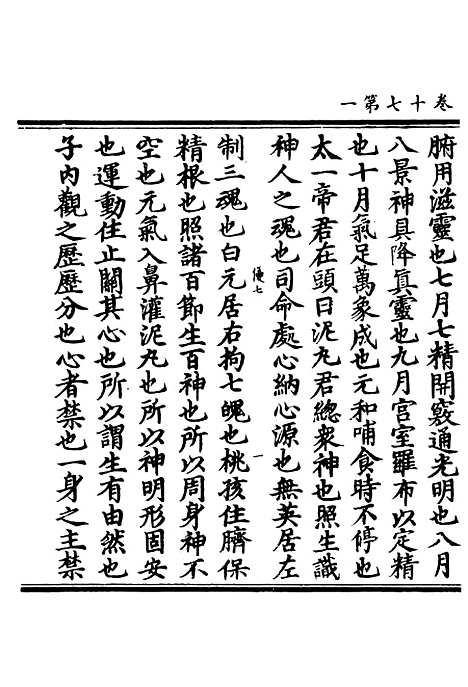 卷十七第一
腑用滋靈也七月七精開竅通光明也八月
八景神具降真靈也九月宮室羅布以定精
也十月氣足萬象成也元和哺食時不停也
太一帝君在頭曰泥丸君總衆神也照生識
神人之魂也司命處心納心源也無英居左
優七 一
制三魂也白元居右拘七魄也桃孩住臍保
精根也照諸百節生百神也所以周身神不
空也元氣入鼻灌泥丸也所以神明形固安
也運動住止關其心也所以謂生有由然也
子內觀之歷歷分也心者禁也一身之主禁